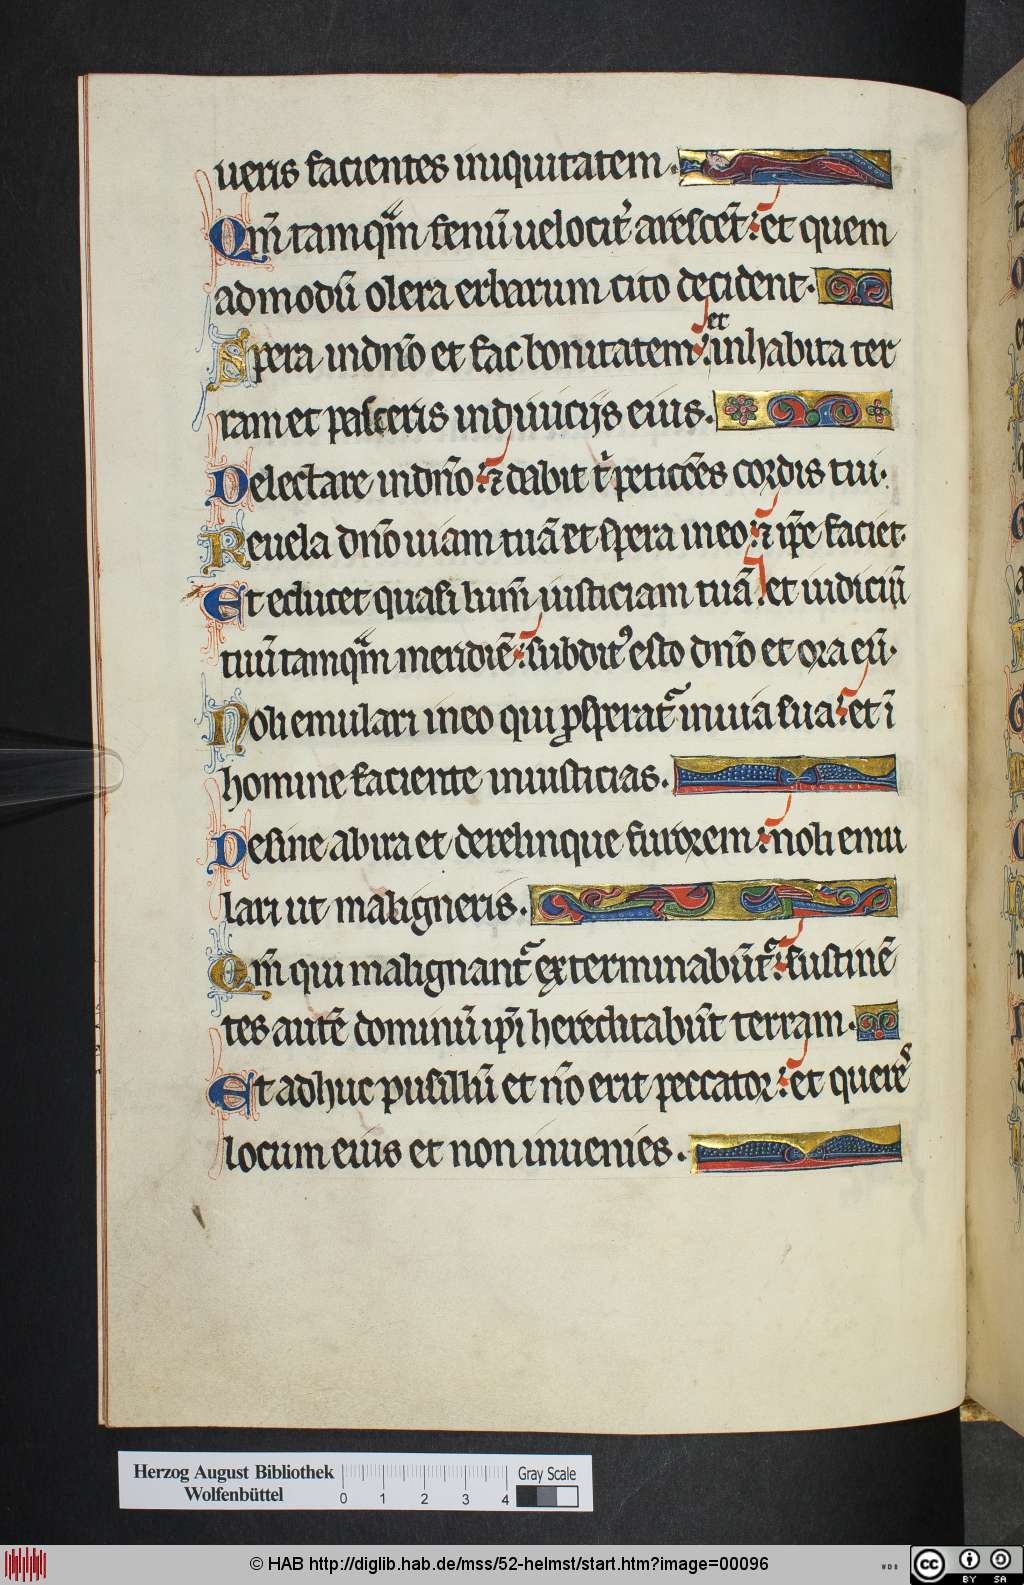 ueris facientes iniquitatem.
Qm̄ tamqm̄ fenū uelocit᷑ arescēt: et quem
admodū olera erbarum cito decident.
et
Spera in dn̄o et fac bonitatem: inhabita ter
ram et pasceris in diuicijs eius.
Delectare in dn̄o: ⁊ dabit t' peticōēs cordis tui.
Reuela dn̄o uiam tuā et spera in eo: ⁊ ip̄e faciet.
Et educet quasi lum̄ iusticiam tuā: et iudiciū
tuū tamqm̄ meridiē: subditꝰ esto dn̄o et ora eū.
Noli emulari in eo qui ꝓsperat᷑ in uia sua: et ī
homine faciente iniusticias.
Desine ab ira et derelinque furorem: noli emu
lari ut maligneris.
Qm̄ qui malignant᷑ exterminabūt᷑: sustinē
tes autē dominū ip̄i hereditabūt terram.
Et adhuc pusillū et nō erit peccator: et querēs
locum eius et non inuenies.
Herzog August Bibliothek
Wolfenbüttel
0 1 2 3 4
Gray Scale
© HAB http://diglib.hab.de/mss/52-helmst/start.htm?image=00096
WDB
cc BY SA